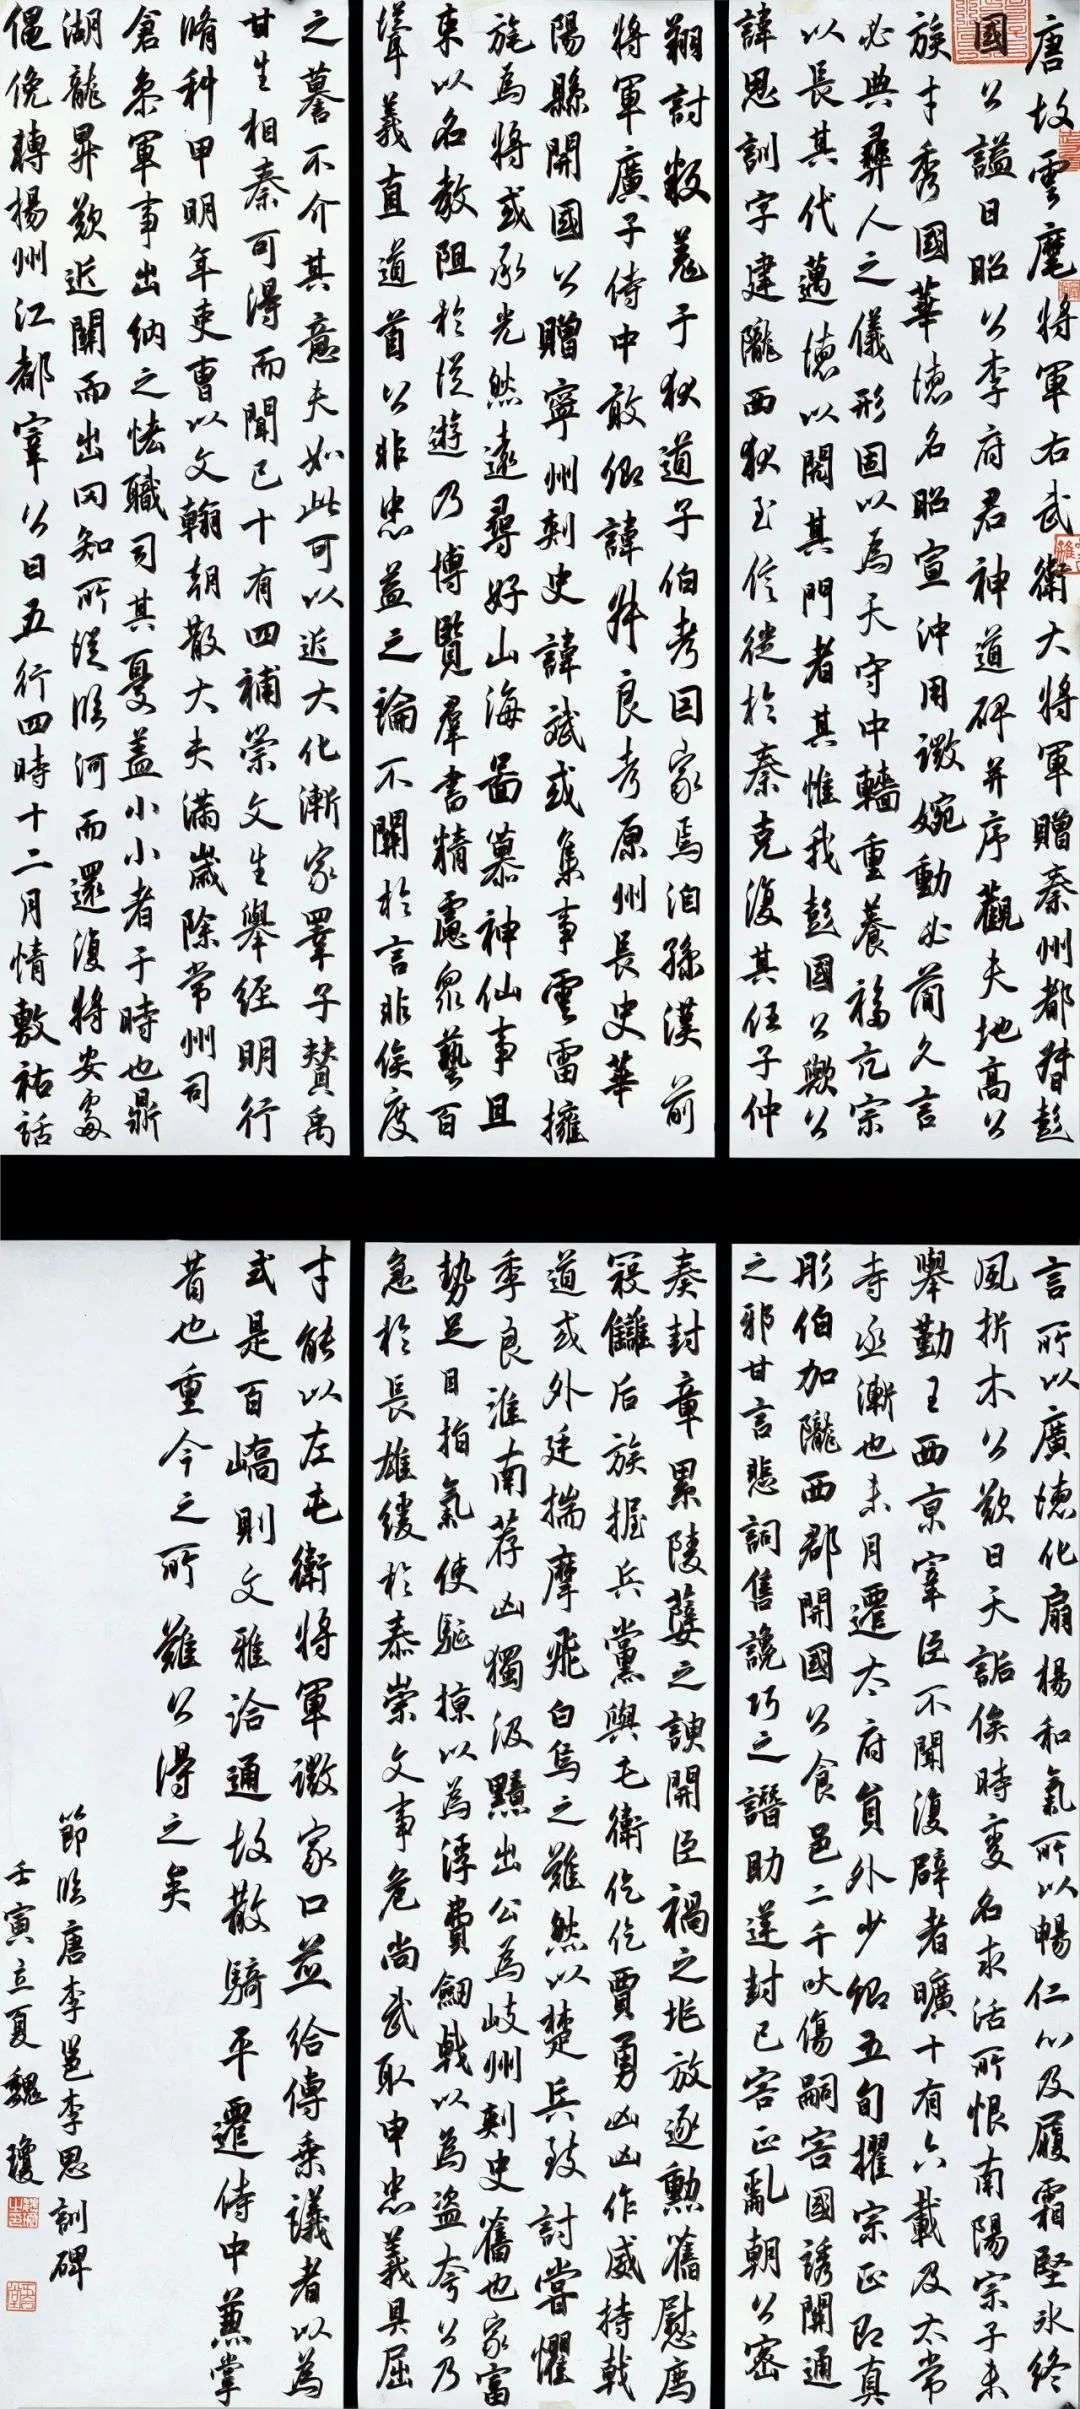 唐故雲麾將軍右武衛大將軍贈秦州都督彭
國公謚曰昭公李府君神道碑并序觀夫地高公
族才秀國華德名昭宣沖用徽婉動必簡久言
必典彝人之儀形固以爲天守中轖重養福亢宗
以長其代邁德以閎其門者其惟我彭國公歟公
諱思訓字建隴西狄至信徙於秦克復其任子仲
翔討叛羌于狄道子伯考因家焉洎孫漢前
將軍廣子侍中敢卿諱昇良考原州長史華
陽縣開國公贈寧州刺史諱斌或集事雲雷擁
旄爲將或承光然遠尋好山海啚慕神仙事且
束以名教阻於從遊乃博覽羣書精慮衆藝百
揖聳義直道首公非忠益之論不關於言非侯度
之謩不介其意夫如此可以近大化漸家罩子贊禹
甘生相秦可得而聞已十有四補崇文生舉經明行
脩科甲明年吏曹以文翰朝散大夫滿歲除常州司
倉參軍事出納之恡職司其憂蓋小小者于時也鼎
湖龍昇歎近關而出罔知所從臨河而還復將安處
僶俛轉揚州江都宰公曰五行四時十二月情敷祐話
言所以廣德化扇楊和氣所以暢仁心及履霜堅冰終
風折木公歎曰天詬俟時變名求活所恨南陽宗子未
舉勤王西京宰臣不聞復辟者曠十有六載及太常
寺丞漸也未月遷太府員外少卿五旬擢宗正即真
彤伯加隴西郡開國公食邑二千吠傷嗣害國誘關通
之邪甘言悲詞售讒巧之譖助逆封已害正亂朝公密
奏封章累陵蘷之諛開臣禍之兆放逐勲舊慰薦
寇讎后族握兵黨與屯衛仡仡賈勇凶凶作威持戟
道或外廷揣摩飛白鳥之難然以楚兵致討嘗懼
季良淮南荐凶獨汲黯出公爲岐州刺史舊也家富
勢足目指氣使駈掠以為浮費劒戟以為盗夸公乃
急於長雄緩於泰崇文事危尚武取申忠義具屈
才能以左屯衛將軍徵家口並給傳乘議者以為
式是百嶠則文雅洽通故散騎平遷侍中兼掌
昔也重今之所難公得之矣
節臨唐李邕李思訓碑
壬寅立夏魏瓊